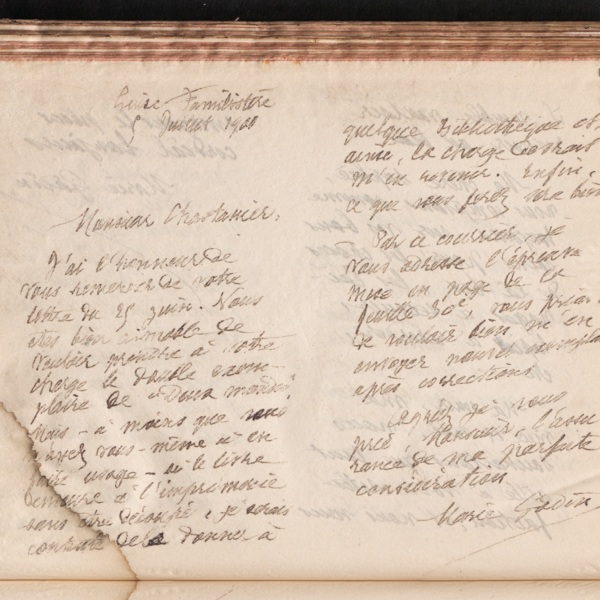 Guise-Familistère
5 Juillet 1900
Monsieur Chastanier,
J'ai l'honneur de
vous remercier de votre
lettre du 25 juin. Vous
êtes bien aimable de
vouloir prendre à votre
charge le double exem-
plaire de "Doux
mais - à moins que vous
n'ayez vous-même à en
faire usage - si le livre
demeure à l'imprimerie
sans être découpé, je serais
contente de le donner à
quelque Bibliothèque et,
ainsi, la charge
m'en revenir. Enfin,
ce que vous ferez sera bien
Par ce courrier, je
vous adresse l'épreuve
mise en page de la
feuille 30e, vous priant
de vouloir bien m'en
envoyer nouvel
après corrections.
Agréez, je vous
prie, Monsieur, l'assu-
rance de ma parfaite
considération
Marie Godin